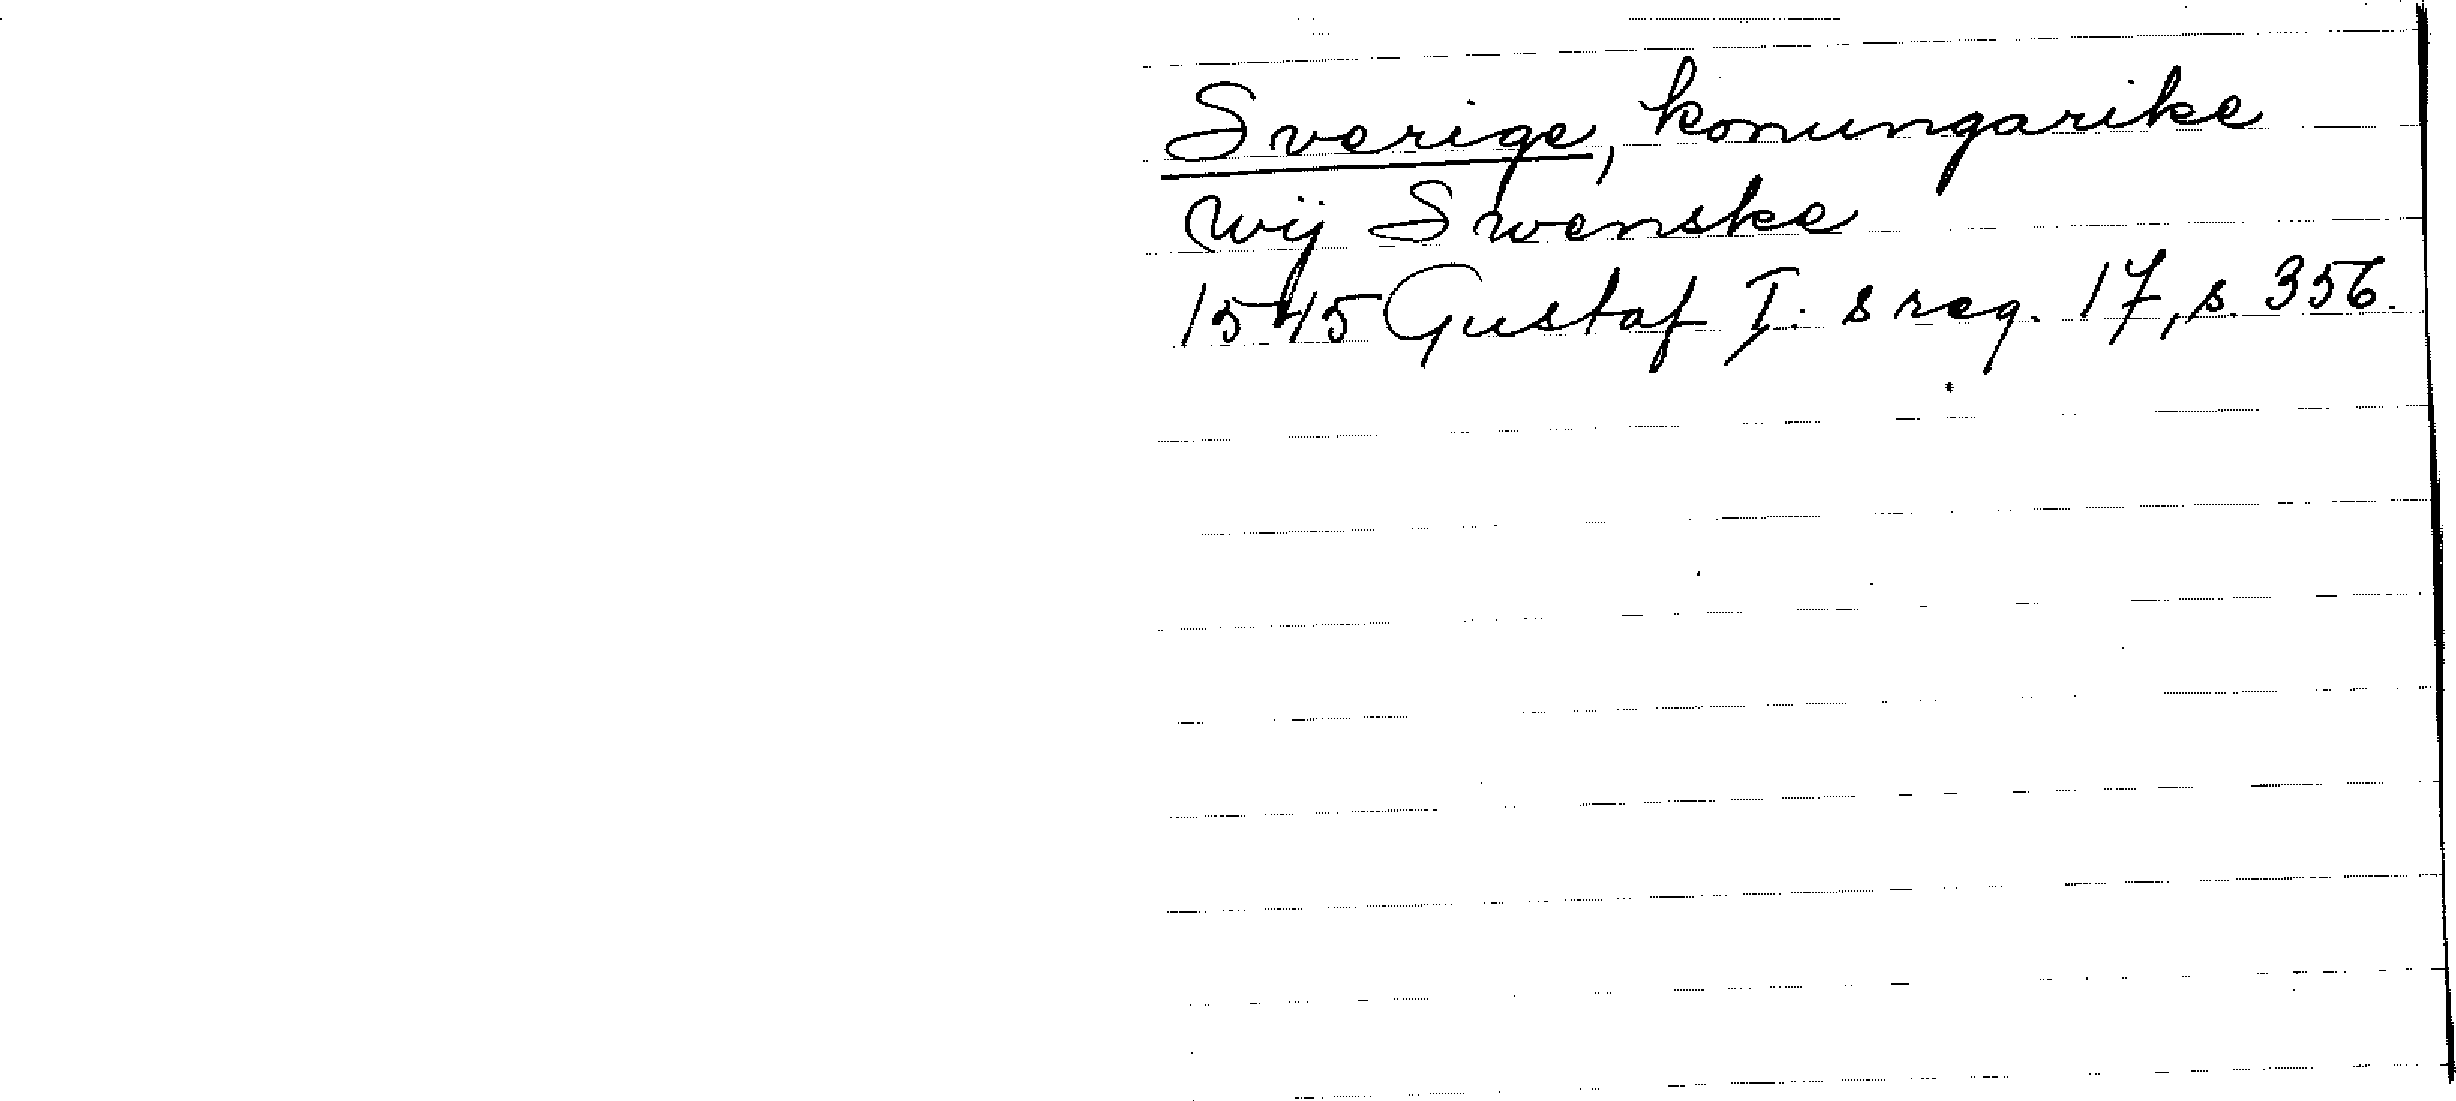 Sverige, konungarike
wij Swenske
1545 Gustaf I: s reg. 17, s. 356.